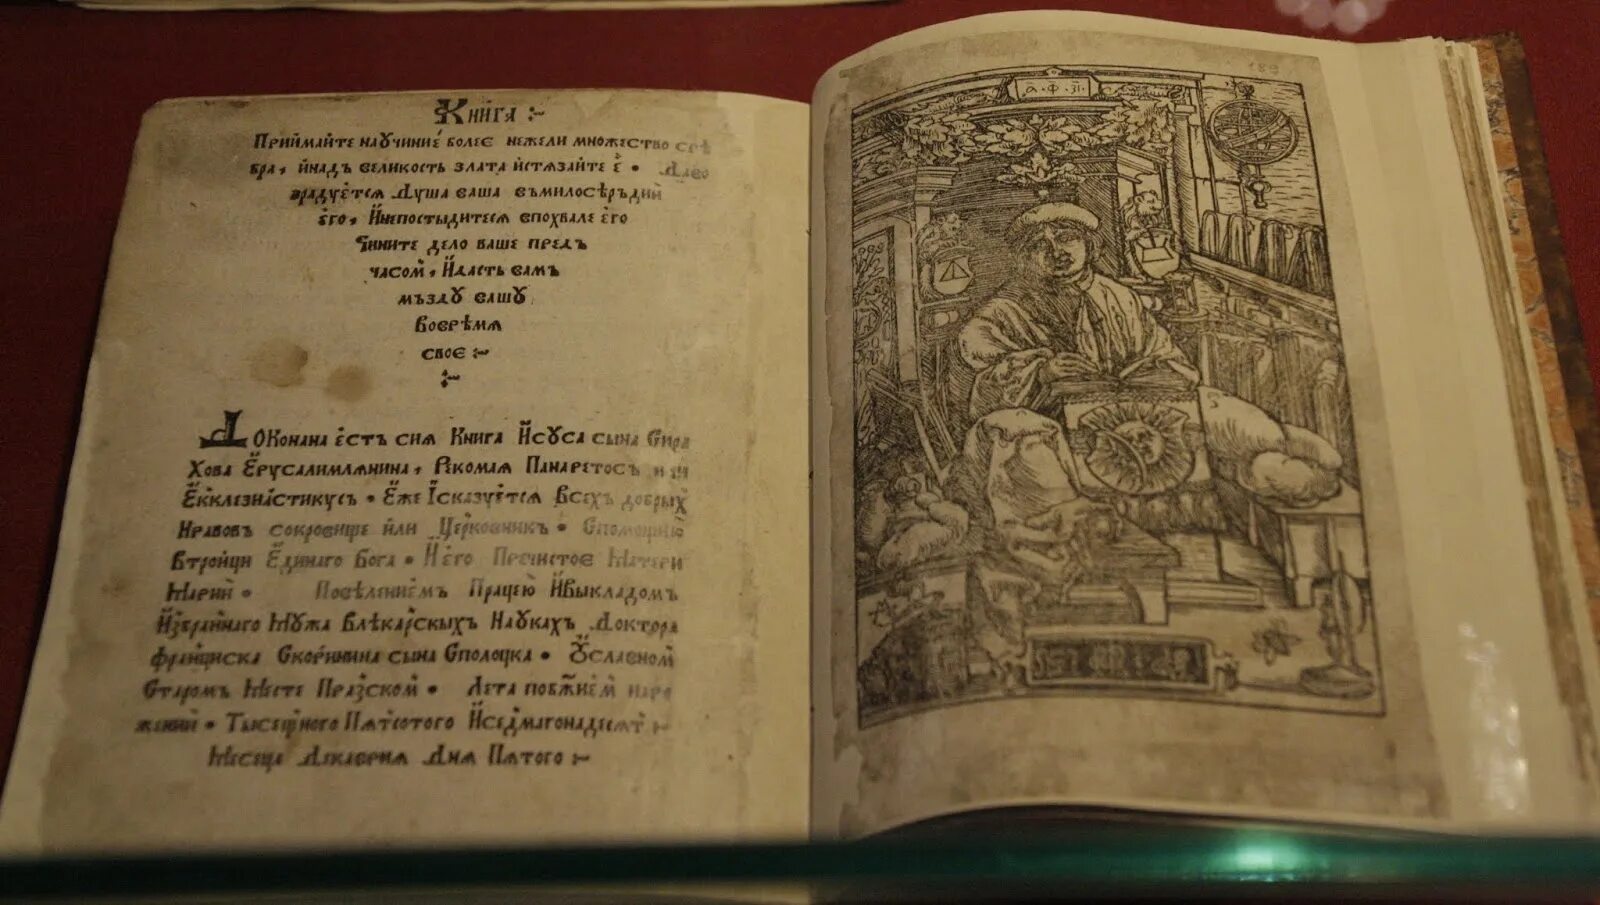 Книга :~
Приймайте научиние́ более нежели множество сре
бра, и́надъ великость злата и́стѧзайте е́ • Даво
зрадуе́тсѧ Душа ваша въмилосе́рьдий
е́го, И́непостыдитесѧ впохвале е́го
Чините дело ваше предъ
часом, И́дасть вамъ
мьздꙋ вашꙋ
Вовремѧ
своє :~
Доконана е́сть сиѧ Книга И́сꙋса сына Сира
Хова Е́русалимлѧнина, Рекомаѧ Панаретосъ
Е́кклезиа́стикусъ • Е́же І́сказуе́тсѧ Всех добрых
Нравовъ сокровище и́ли Церковникъ • Спомощию
Втройци Е́динаго Бога • И́е́го Пречистое Матери
Марии́ • Повеление́мъ Працею И́выкладомъ
И́збранна́го Мужа Влекарскыхъ Наукахъ Доктора
францискa Скоринина сына Сполоцка • Ꙋславном
Старомъ Месте Празском • Лета побжием наро
жений • Тысещного Пѧтсотого И́седмагонадесѧт :~
Месеца Декавриѧ Днѧ Пѧтого :~
А • Ф • ЗІ •